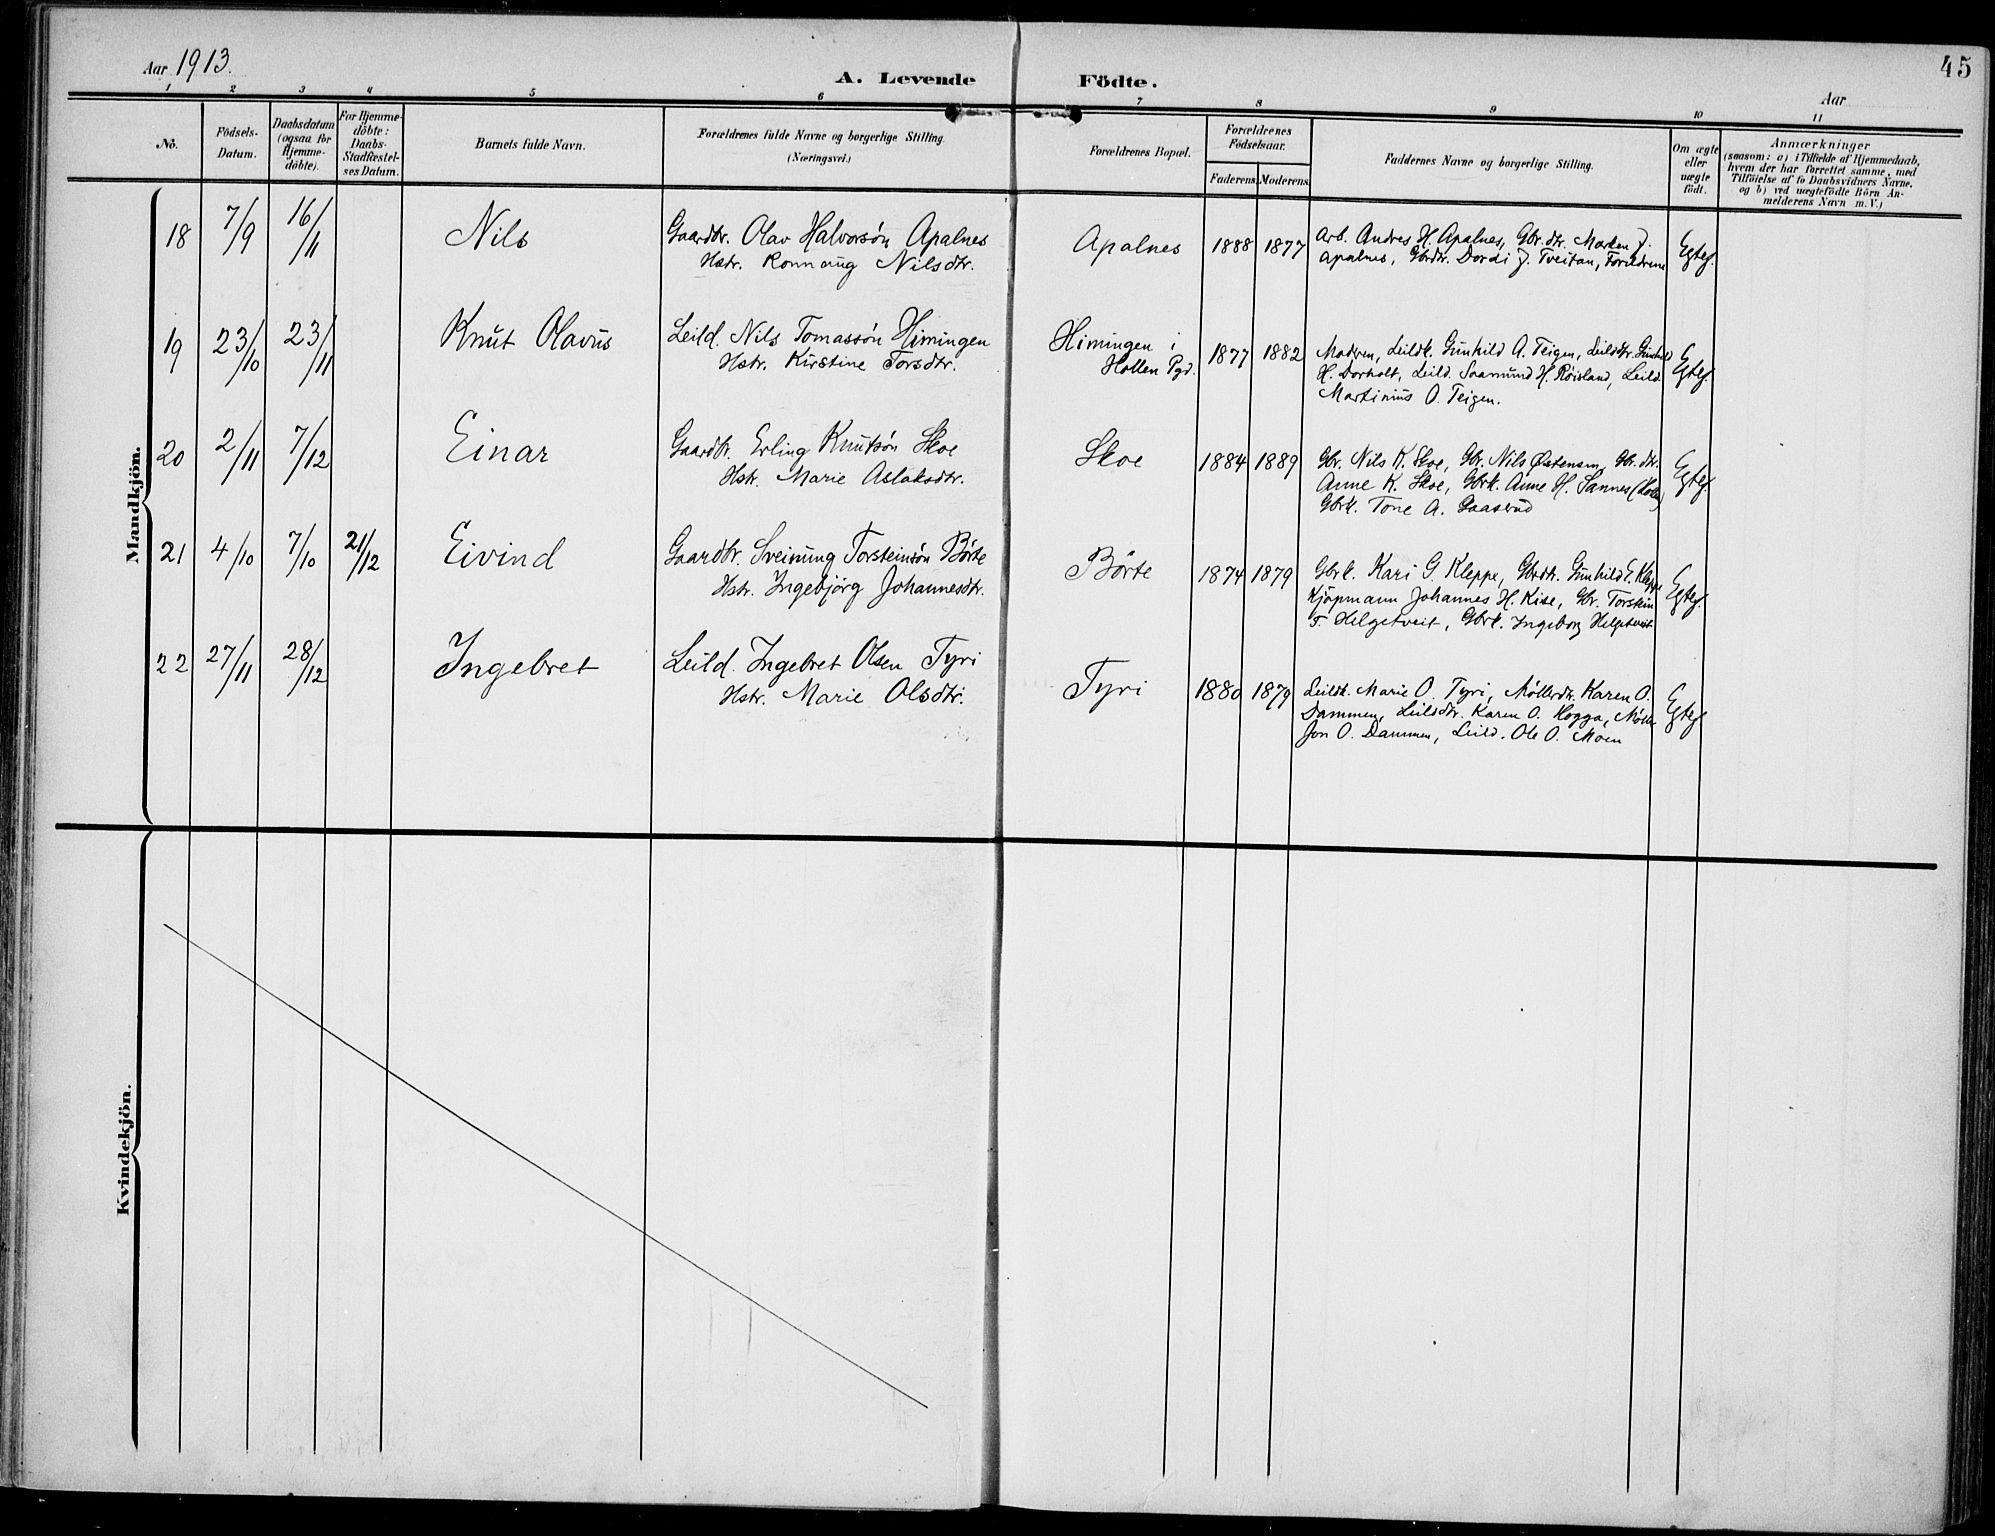 Aar 1913.
A. Levende Födte.
45
Aar
1 2 3 4 5 6 7 8 9 10 11
No.
Födsels-Datum.
Daabsdatum (ogsaa for Hjemme-döbte).
For Hjemme-döbte: Daabs-Stadfæstel-ses Datum.
Barnets fulde Navn.
Forældrenes fulde Navne og borgerlige Stilling.
(Næringsvei.)
Forældrenes Bopæl.
Forældrenes Födselsaar.
Faderens. Moderens.
Faddernes Navne og borgerlige Stilling.
Om ægte eller uægte födt.
Anmærkninger
(saasom: a) i Tilfælde af Hjemmedaab,
hvem der har forrettet samme, med
Tilföielse af to Daabsvidners Navne.
og b) ved uægtefödte Börn An-
melderens Navn m. V.)
Mandkjön.
18 7/9 16/11 Nils Gaardbr. Olav Halvorsøn Apalnes Apalnes 1888 1877 Arb. Andres H. Apalnes, Gbr.dtr. Marken J. Egtef.
Hstr. Rønnaug Nilsdtr. Apalnes, Gbrdtr. Dordi J. Tveitan, Forældrene
19 23/10 23/11 Knut Olavus Leild. Nils Tomassøn Himingen Himingen i 1877 1882 Moderen, Leildk. Gunhild A. Teigen, Leildtr. Gunhild Egtef.
Hstr. Kirstine Torsdtr. Hollen Pgd. H. Dorholt, Leild. Saamund H. Røisland, Leild.
Martinius O. Teigen.
20 2/11 7/12 Einar Gaardbr. Erling Knutsøn Skoe Skoe 1884 1889 Gbr. Nils K. Skoe, Gbr. Nils Østensen, Gbr. dtr. Egtef.
Hstr. Marie Aslaksdtr. Anne K. Skoe, Gbrk. Anne H. Sannes
Gbrk. Tone A. Gaaserud
21 4/10 7/10 21/12 Eivind Gaardbr. Sveinung Torsteinsøn Børte Børte 1874 1879 Gbrk. Kari G. Kleppe, Gbrdtr. Gunhild E. Kleppe Egtef.
Hstr. Ingebjörg Johannesdtr. Kjøpmann Johannes H. Kise, Gbr. Torstein
T. Helgetveit, Gbrk. Ingeborg Helgetveit
22 27/11 28/12 Ingebret Leild. Ingebret Olsen Tyri Tyri 1880 1879 Leildk. Marie O. Tyri, Møllerdtr. Karen O. Egtef.
Hstr. Marie Olsdtr. Dammen, Leilsdtr. Karen O. Hogga, Møller
Jon O. Dammen, Leild. Ole O. Moen
Kvindekjön.